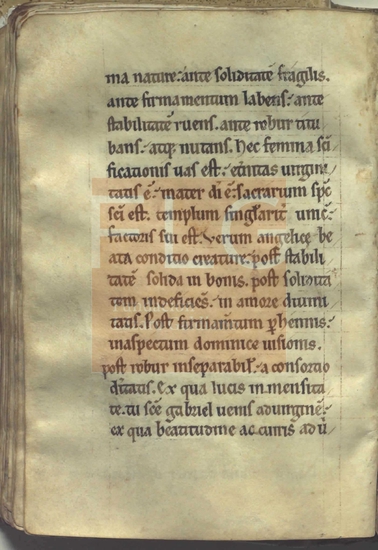 ma nature. ante soliditatē fragilis.
ante firmamentum labens. ante
stabilitatē ruens. ante robur titu
bans. atq; nutans. hec femina sci
ficationis uas est. et̄nitas uirgini
tatis ē. mater di ē. sacrarium sp̄c
sc̄i est. templum singlarit̄
factoris sui est. Verum angelice be
ata conditio creature. post stabili
tatē solida in bonis. post
tem indeficiēs. in amore diuini
tatis. Post firmam̄tum phennis.
inaspectum dominice uisionis.
post robur inseparabil. a consortio
ditatis. Ex qua lucis inmensita
te. tu sc̄e gabriel uenis
ex qua beatitudine accurris ad ū